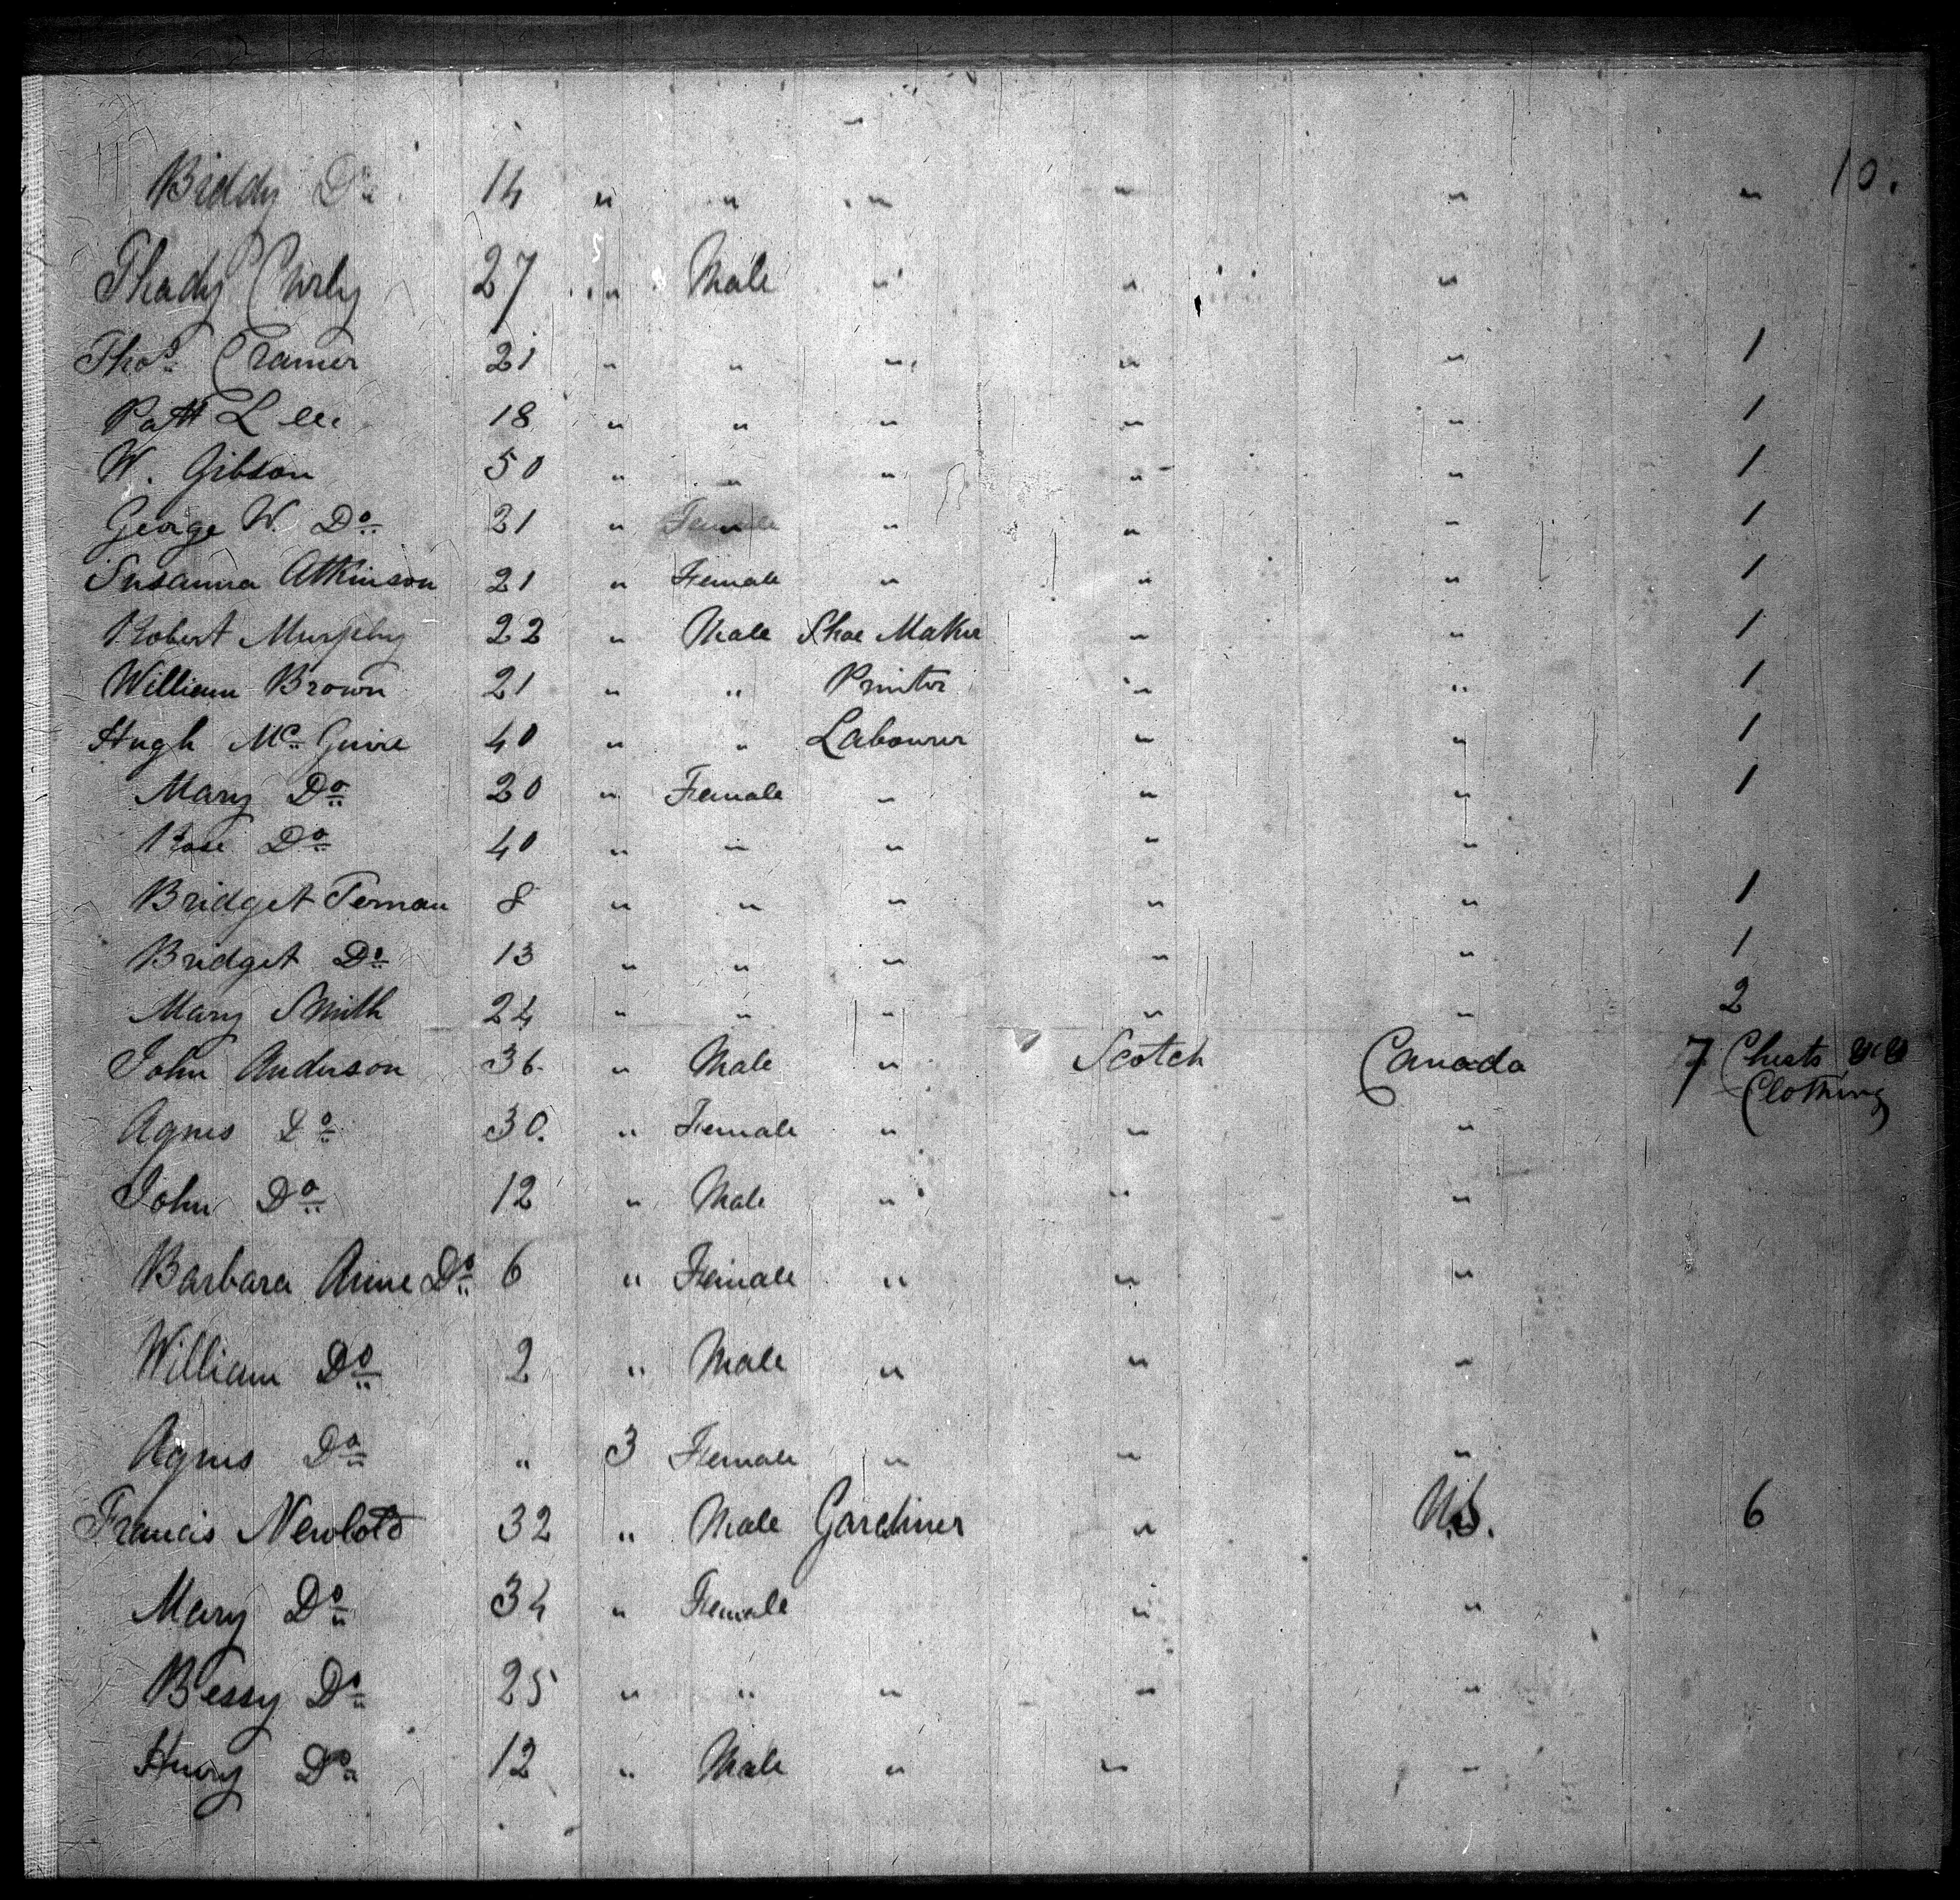 10.
Biddy Do 14 " " " " " "
Thady Curly 27 " Male " " "
Thos. Cramer 21 " " " " " 1
Patt Lee 18 " " " " " 1
W. Gibson 50 " " " " " 1
George W. Do 21 " " " " " 1
Susanna Atkinson 21 " Female " " " 1
Robert Murphy 22 " Male Shoe Maker " " 1
William Brown 21 " " Printer " " 1
Hugh Mc Guire 40 " " Labourer " " 1
Mary Do 20 " Female " " " 1
Rose Do 40 " " " " "
Bridget Ternan 8 " " " " " 1
Bridget Do 13 " " " " " 1
Mary Smith 24 " " " " " 2
John Anderson 36 " Male " Scotch Canada 7 Chests
Clothing
Agnes Do 30. " Female " " "
John Do 12 " Male " " "
Barbara Anne Do 6 " Female " " "
William Do 2 " Male " " "
Agnes Do " 3 Female " " "
Francis Newbold 32 " Male Gardiner " U.S. 6
Mary Do 34 " Female " "
Bessy Do 25 " " " " "
Henry Do 12 " Male " " "